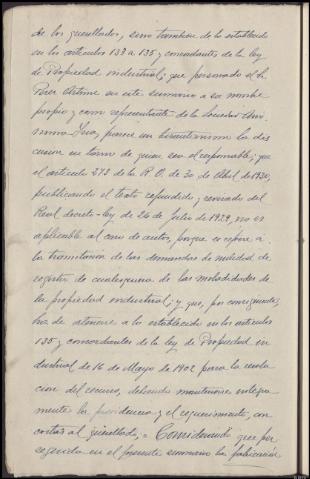 de los querellados, sino tambien de lo establecido
en los articulos 133 a 135 y concordantes de la ley
de Propiedad industrial; que personado el Sr.
Baer Obtime en este sumario a su nombre
propio y como representante de la Sociedad Anó
nima parece un bizantinismo la dis
cusion en torno de quien sea el responsable; que
el articulo 273 de la R. O. de 30 de Abril de 1930,
publicando el texto refundido y revisado del
Real decreto-ley de 26 de Julio de 1929, no es
aplicable al caso de autos, porque se refiere a
la tramitacion de las demandas de nulidad de
registro de cualesquiera de las modalidades de
la propiedad industrial; y que, por consiguiente,
ha de atenerse a lo establecido en los articulos
135 y concordantes de la ley de Propiedad in
dustrial de 16 de Mayo de 1902 para la resolu
cion del recurso, debiendo mantenerse integra
mente la providencia y el requerimiento, con
costas al querellado. = Considerando que per
siguiendo en el presente sumario la fabricación